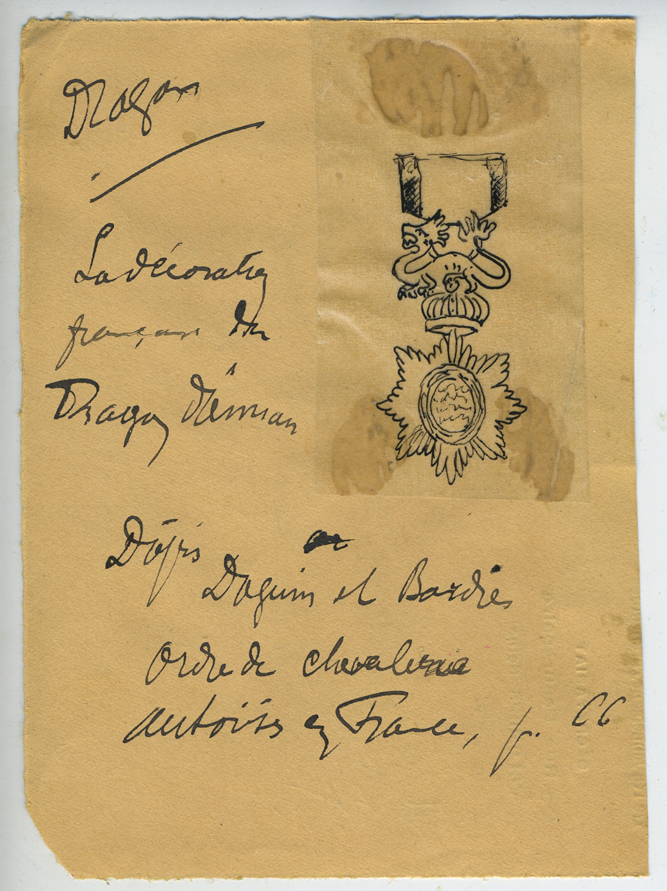 Dragon
La décoration
française du
Dragon d'Annam
D'après
Daguin et Bardies
Ordre de chevalerie
autorisés en France, p. 66